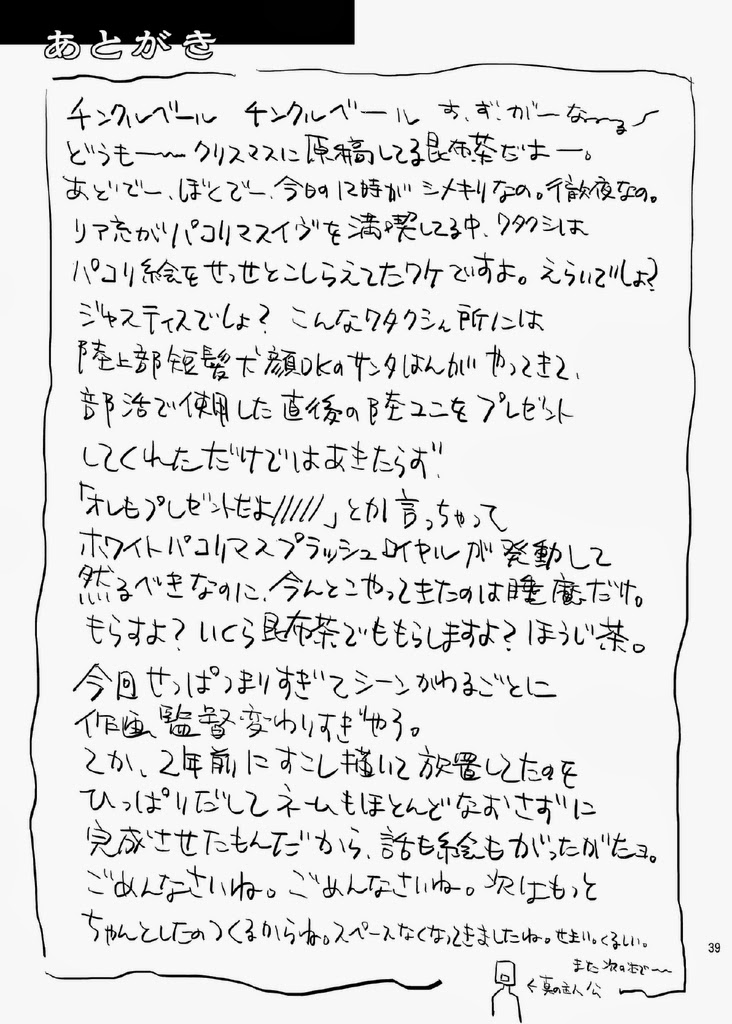 あとがき
チンクルベール チンクルベール す、ず、がーなーる
どうもー クリスマスに原稿してる昆布茶だよー。
あどでー、ぼくでー、今日の12時が シメキリなの。徹夜なの。
リア充がパコリマスイヴを満喫してる中、ワタクシは
パコリ絵をせっせとこしらえてたワケですよ。えらいでしょ?
ジャスティスでしょ? こんなワタクシん所には
陸上部短髪犬顔DKのサンタはんが やってきて、
部活で使用した直後の陸ユニをプレゼント
してくれただけではあきたらず、
「オレもプレゼントだよ/////」とか言っちゃって
ホワイトパコリマスプラッシュロイヤルが発動して
然るべきなのに、今んとこやってきたのは睡魔だけ。
もらすよ? いくら昆布茶でももらしますよ? ほうじ茶。
今回せっぱつまりすぎてシーンかわるごとに
作画監督変わりすぎやろ。
てか、2年前にすこし描いて放置してたのを
ひっぱりだしてネームもほとんどなおさずに
完成させたもんだから、話も絵もがったがたョ。
ごめんなさいね。ごめんなさいね。次はもっと
ちゃんとしたのつくるからね。スペースなくなってきましたね。せまい。くるしい。
また次の本で〜
←真の主人公
39